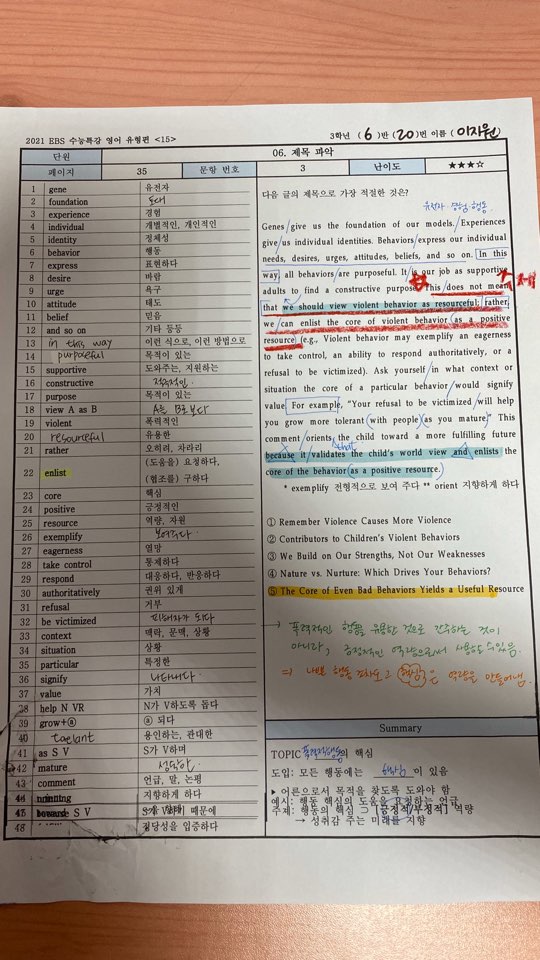 2021 EBS 수능특강 영어 유형편 <15>
3학년 ( 6 )반 ( 20 )번 이름 ( 이지원 )
단원 06. 제목 파악
페이지 35 문항 번호 3 난이도 ★★★☆
1 gene 유전자
2 foundation 토대
3 experience 경험
4 individual 개별적인, 개인적인
5 identity 정체성
6 behavior 행동
7 express 표현하다
8 desire 바람
9 urge 욕구
10 attitude 태도
11 belief 믿음
12 and so on 기타 등등
13 in this way 이런 식으로, 이런 방법으로
14 purposeful 목적이 있는
15 supportive 도와주는, 지원하는
16 constructive 적극적인
17 purpose 목적이 있는
18 view A as B A를 B로 보다
19 violent 폭력적인
20 resourceful 유용한
21 rather 오히려, 차라리
22 enlist (도움을) 요청하다, (협조를) 구하다
23 core 핵심
24 positive 긍정적인
25 resource 역량, 자원
26 exemplify 보여주다
27 eagerness 열망
28 take control 통제하다
29 respond 대응하다, 반응하다
30 authoritatively 권위 있게
31 refusal 거부
32 be victimized 피해자가 되다
33 context 맥락, 문맥, 상황
34 situation 상황
35 particular 특정한
36 signify 나타내다
37 value 가치
38 help N VR N가 V하도록 돕다
39 grow+ⓐ ⓐ 되다
40 toelant 용인하는, 관대한
41 as S V S가 V하며
42 mature 성숙한
43 comment 언급, 말, 논평
44 지향하게 하다
47 S V S가 V하기 때문에
48 정당성을 입증하다
다음 글의 제목으로 가장 적절한 것은?
유전자 경험 행동
Genes give us the foundation of our models. Experiences
give us individual identities. Behaviors express our individual
needs, desires, urges, attitudes, beliefs, and so on. In this
way, all behaviors are purposeful. It is our job as supportive
adults to find a constructive purpose. This does not mean
that we should view violent behavior as resourceful; rather,
we can enlist the core of violent behavior as a positive
resource (e.g., Violent behavior may exemplify an eagerness
to take control, an ability to respond authoritatively, or a
refusal to be victimized). Ask yourself in what context or
situation the core of a particular behavior would signify
value. For example, "Your refusal to be victimized will help
you grow more tolerant with people as you mature." This
comment orients the child toward a more fulfilling future
because it validates the child's world view and enlists the
core of the behavior as a positive resource.
* exemplify 전형적으로 보여 주다 ** orient 지향하게 하다
① Remember Violence Causes More Violence
② Contributors to Children's Violent Behaviors
③ We Build on Our Strengths, Not Our Weaknesses
④ Nature vs. Nurture: Which Drives Your Behaviors?
⑤ The Core of Even Bad Behaviors Yields a Useful Resource
→ 폭력적인 행동을 유용한 것으로 간주하는 것이
아니라, 긍정적인 역량으로서 사용할 수 있음.
⇒ 나쁜 행동 조차도 그 핵심은 역량을 만들어냄.
Summary
TOPIC 폭력적 행동의 핵심
도입: 모든 행동에는 핵심 이 있음
▶ 어른으로서 목적을 찾도록 도와야 함
예시: 행동 핵심의 도움을 요청하는 언급
주제: 행동의 핵심 ⊃ [긍정적/부정적] 역량
→ 성취감 주는 미래를 지향